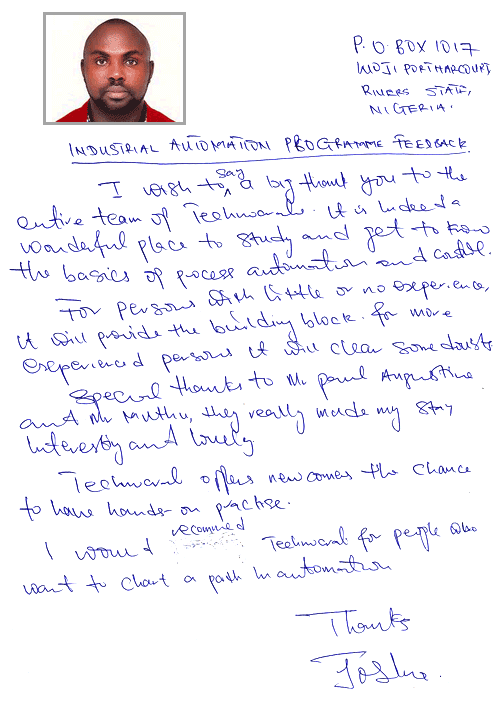 P.O. BOX 1017
WOJI PORTHARCOURT,
RIVERS STATE,
NIGERIA.
INDUSTRIAL AUTOMATION PROGRAMME FEEDBACK
I wish to say a big thank you to the
entire team of Technocrat. It is indeed a
wonderful place to study and get to know
the basics of process automation and control.
For persons with little or no experience,
it will provide the building block. for more
experienced persons it will clear some doubts
Special thanks to Mr Paul Augustine
and Mr Muthu, they really made my stay
Interesting and lovely
Technocrat offers newcomes the chance
to have hands-on practise.
I would recommed Technocrat for people who
want to chart a path in automation
Thanks
Joshua.